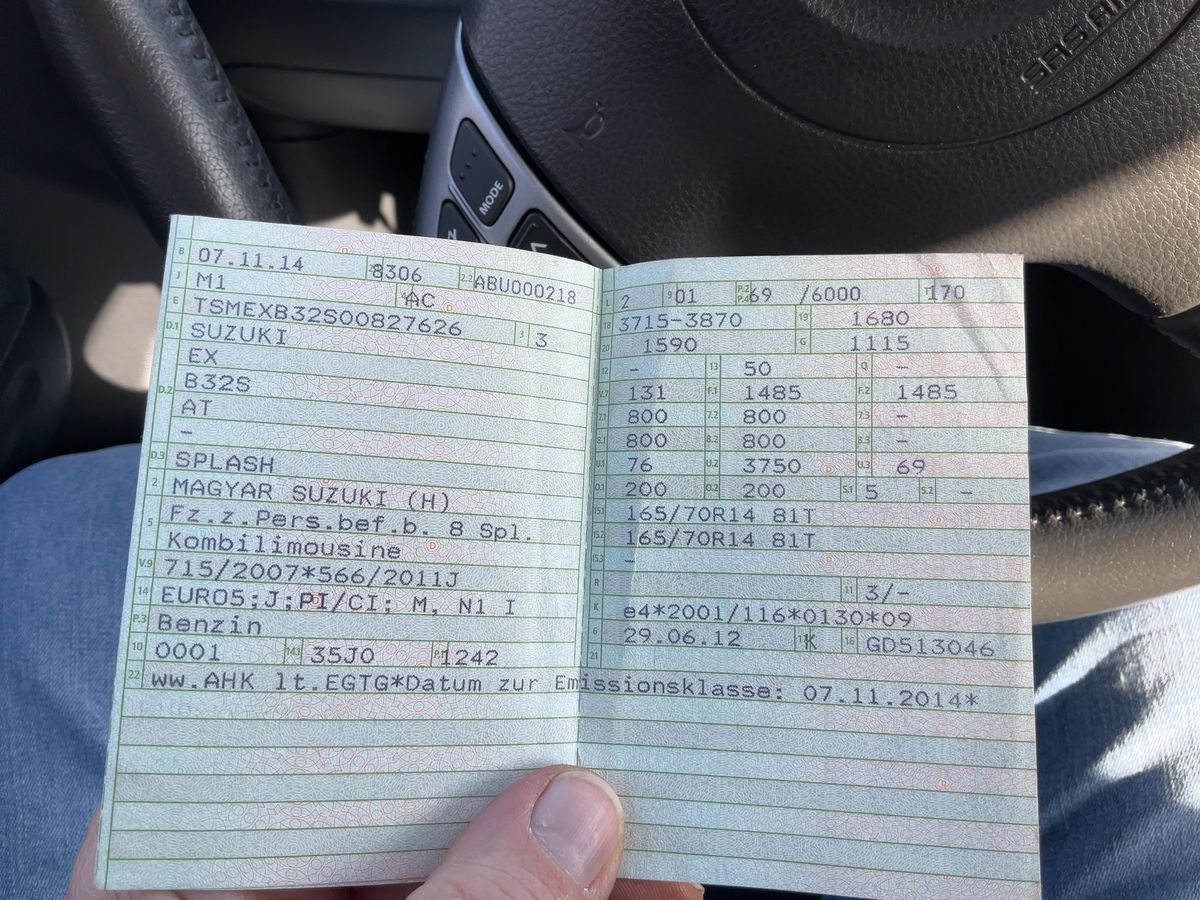 SRS AIR
MODE
B 07.11.14 2.1 8306 2.2 ABU000218
J M1 4 AC
E TSMEXB32S00827626 3 3
D.1 SUZUKI
EX
D.2 B32S
AT
-
D.3 SPLASH
2 MAGYAR SUZUKI (H)
5 Fz.z.Pers.bef.b. 8 Spl.
Kombilimousine
V.9 715/2007*566/2011J
14 EURO5;J;PI/CI; M, N1 I
P.3 Benzin
10 0001 14.1 35J0 P.1 1242
22 ww.AHK lt.EGTG*Datum zur Emissionsklasse: 07.11.2014*
L 2 9 01 P.2 P.4 69 /6000 T 170
18 3715-3870 19 1680
20 1590 G 1115
12 - 13 50 Q -
V.7 131 F.1 1485 F.2 1485
7.1 800 7.2 800 7.3 -
8.1 800 8.2 800 8.3 -
U.1 76 U.2 3750 U.3 69
O.1 200 O.2 200 S.1 5 S.2 -
15.1 165/70R14 81T
15.2 165/70R14 81T
15.3 -
R 11 3/-
K e4*2001/116*0130*09
6 29.06.12 17 K 16 GD513046
21